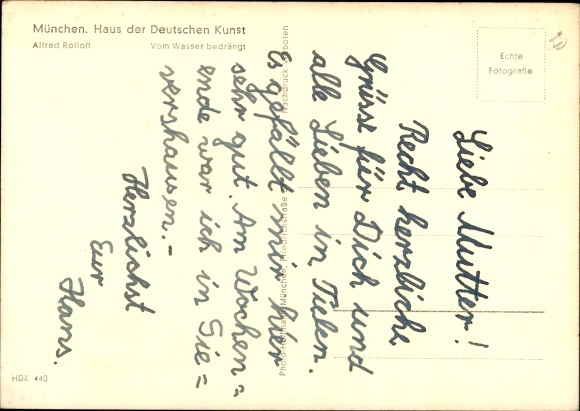 München. Haus der Deutschen Kunst
Alfred Rotloff Vom Wasser bedrängt
Echte
Fotografie
Nachdruck verboten
München, Friedrichstraße
HDK 440
Liebe Mutter!
Recht herzliche
Grüsse für Dich und
alle Lieben in Tulen.
Es gefällt mir hier
sehr gut. Am Wochen=
ende war ich in Gie=
vershausen.-
Herzlichst
Eur
Hans.